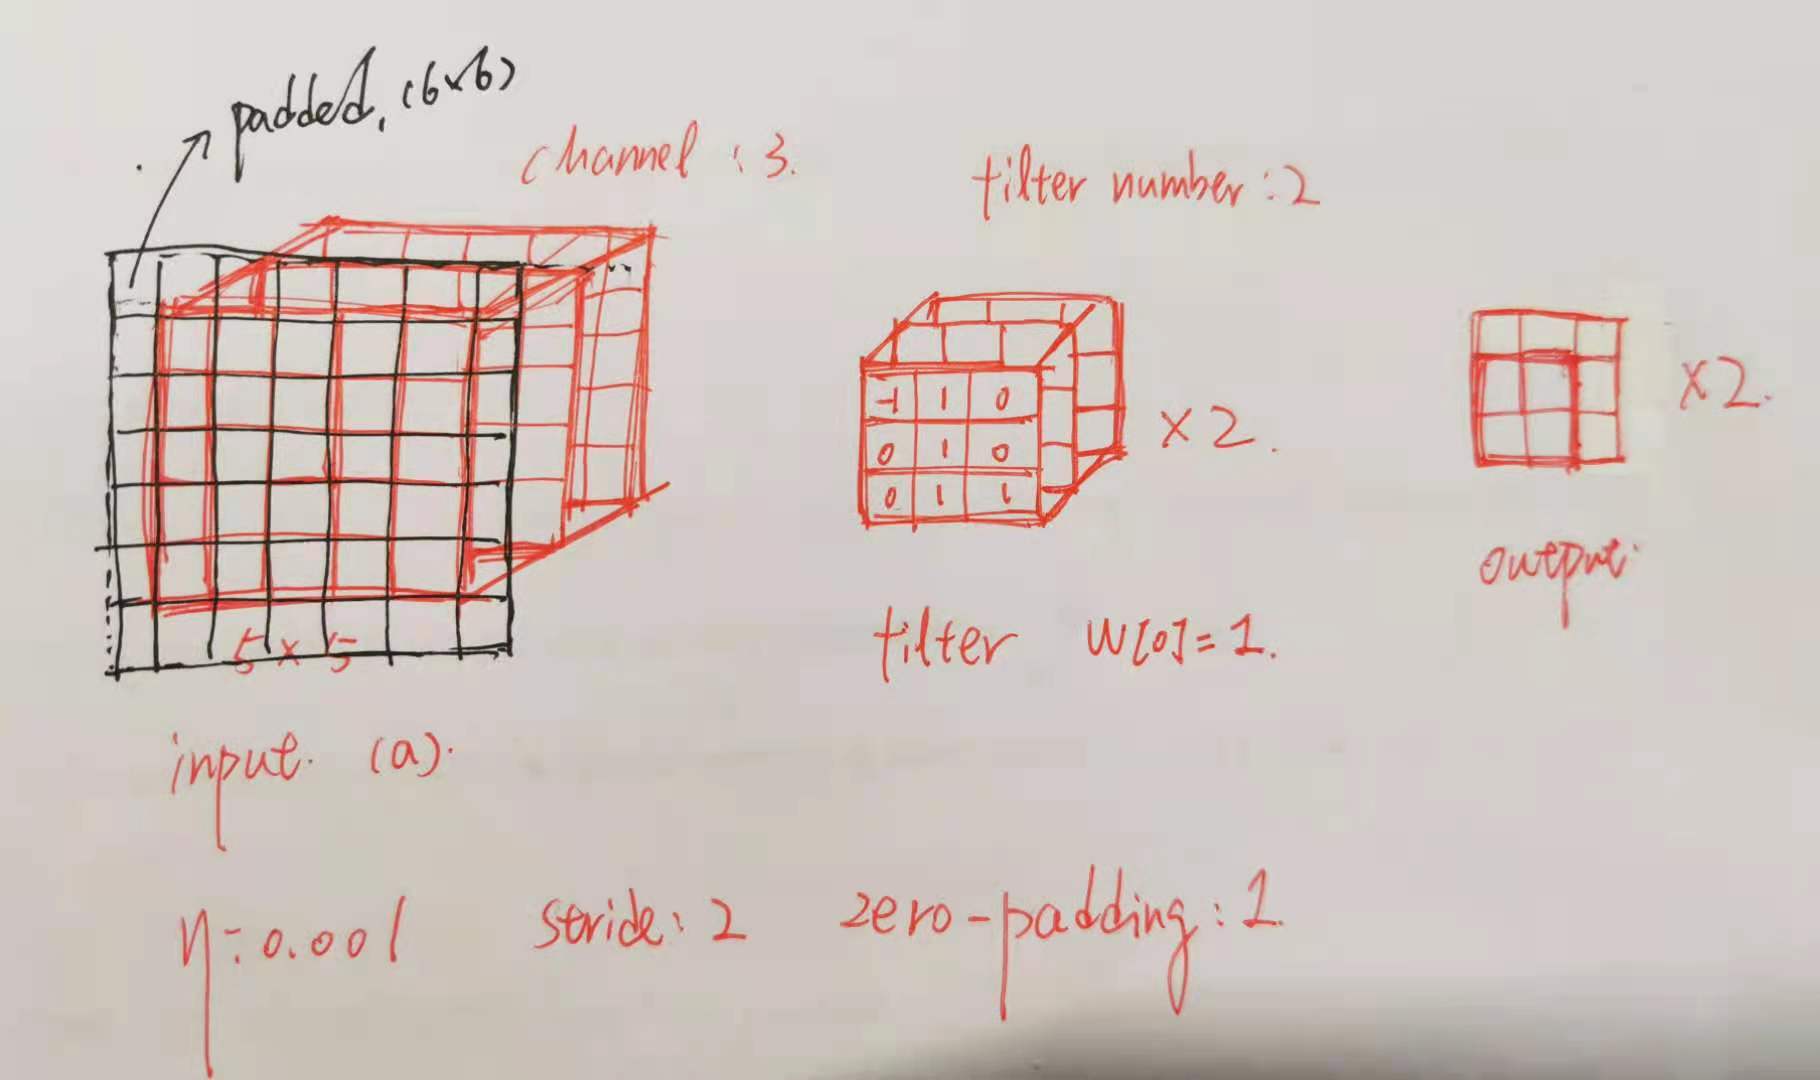 padded. (6×6)
channel : 3.
filter number : 2
-1 1 0
0 1 0
0 1 1
×2.
×2.
output.
5×5
filter W[0]=1.
input. (a).
η=0.001 stride: 2 zero-padding: 1.